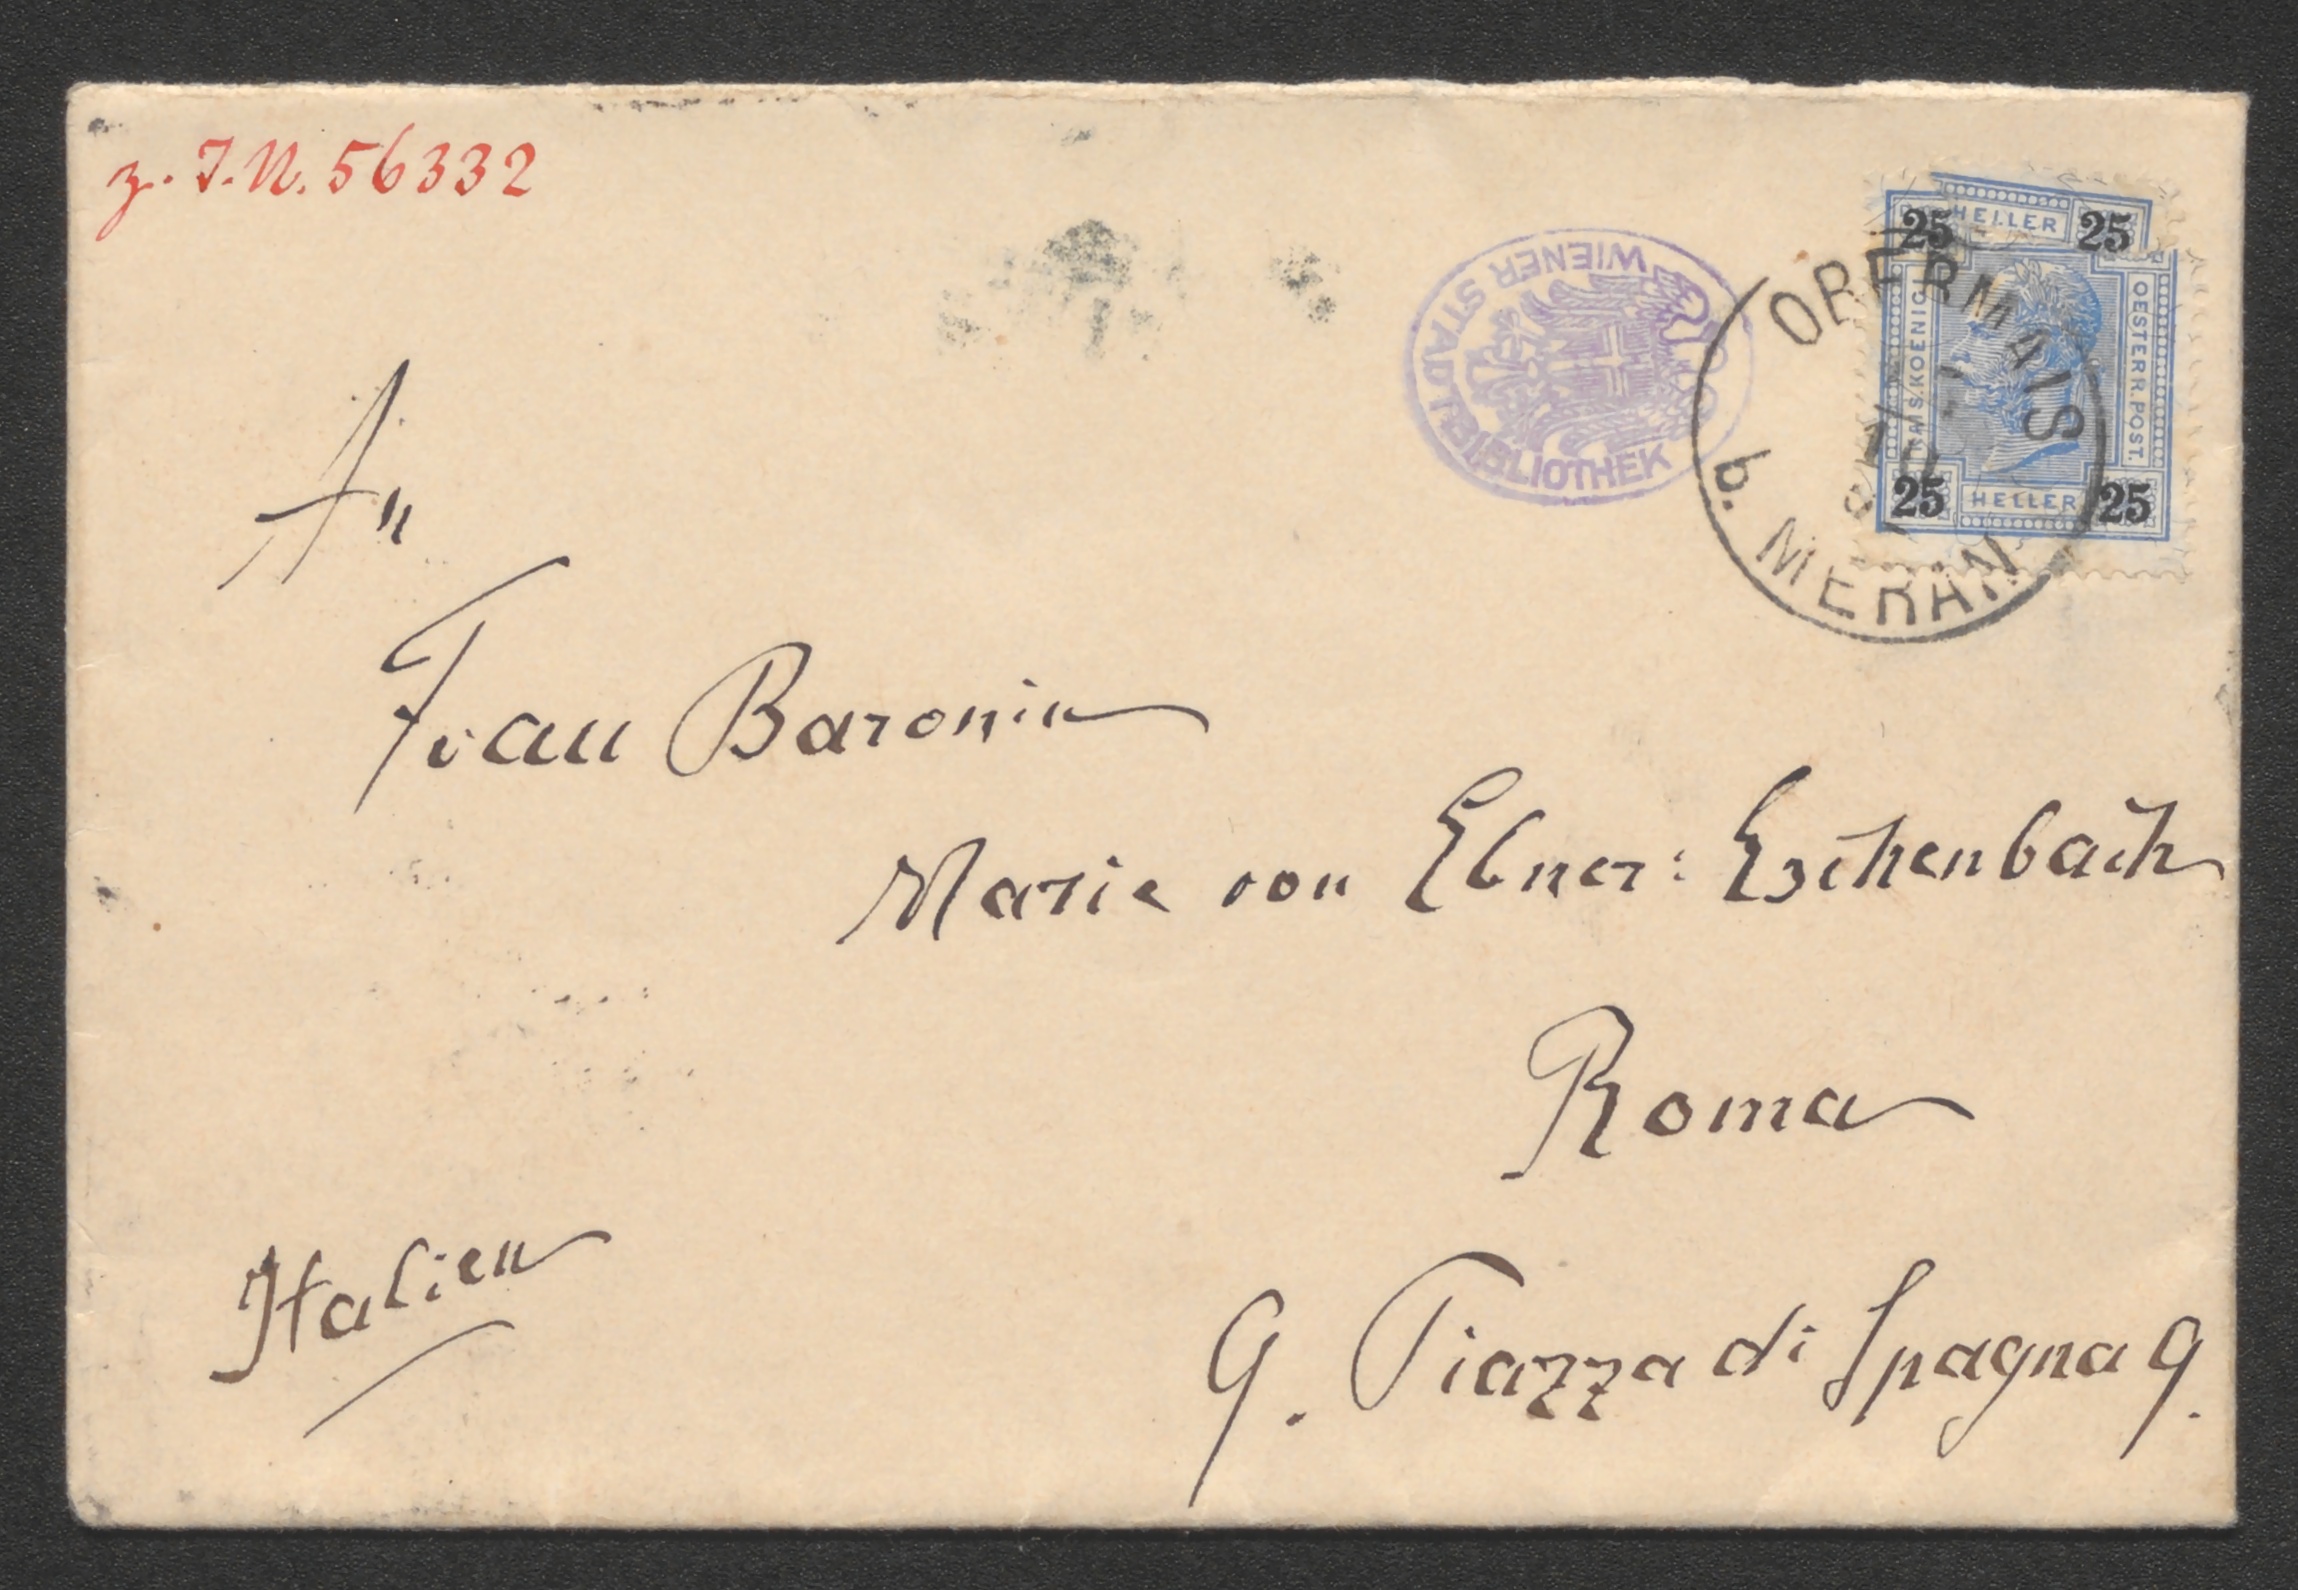 z. I.N. 56332
WIENER STADTBIBLIOTHEK
25 HELLER 25
KAIS. KOENIGL.
OESTERR. POST.
25 HELLER 25
OBERMAIS
b. MERAN
An
Frau Baronin
Marie von Ebner-Eschenbach
Roma
Italien
9. Piazza di Spagna 9.